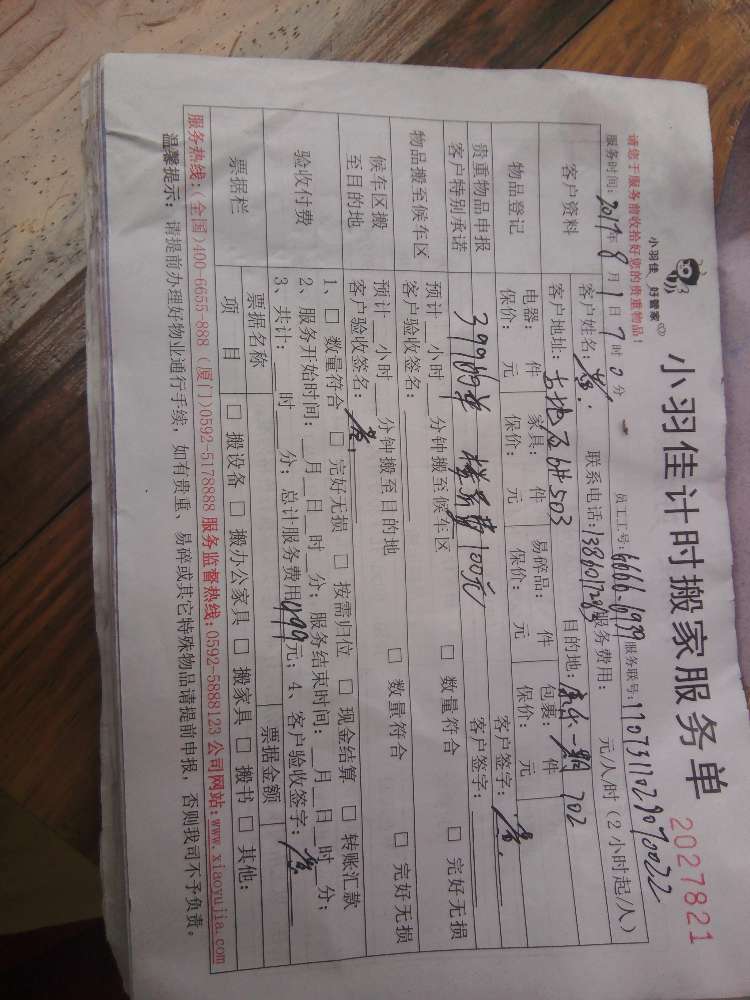 小羽佳 好管家
小羽佳计时搬家服务单
2027821
请您于服务前收拾好您的贵重物品！
服务时间：2017年 8月 1日 7时 0分 员工工号：6666.6939 服务联号：
客户资料
客户姓名： 联系电话： 服务费用： 元/人/时（2小时起/人）
客户地址： 503 目的地： 702
物品登记
电器： 件 家具： 件 易碎品： 件 包裹： 件
保价： 元 保价： 元 保价： 元 保价： 元
客户签字：
贵重物品申报
客户特别承诺
399的单 楼层费100元
客户签字：
物品搬至候车区
预计 小时 分钟搬至候车区 □ 数量符合 □ 完好无损
客户验收签名：
候车区搬
至目的地
预计 小时 分钟搬至目的地 □ 数量符合 □ 完好无损
客户验收签名：
验收付费
1、□ 数量符合 □ 完好无损 □ 按需归位 □ 现金结算 □ 转账汇款
2、服务开始时间： 月 日 时 分；服务结束时间： 月 日 时 分；
3、共计： 时 分；总计服务费用499元；4、客户验收签字：
票据栏
票据名称 票据金额
项 目 □ 搬设备 □ 搬办公家具 □ 搬家具 □ 搬书 □ 其他：
服务热线：(全国)400-6655-888 (厦门)0592-5178888 服务监督热线：0592-5888123 公司网站：www.xiaoyujia.com
温馨提示：请提前办理好物业通行手续，如有贵重、易碎或其它特殊物品请提前申报，否则我司不予负责。